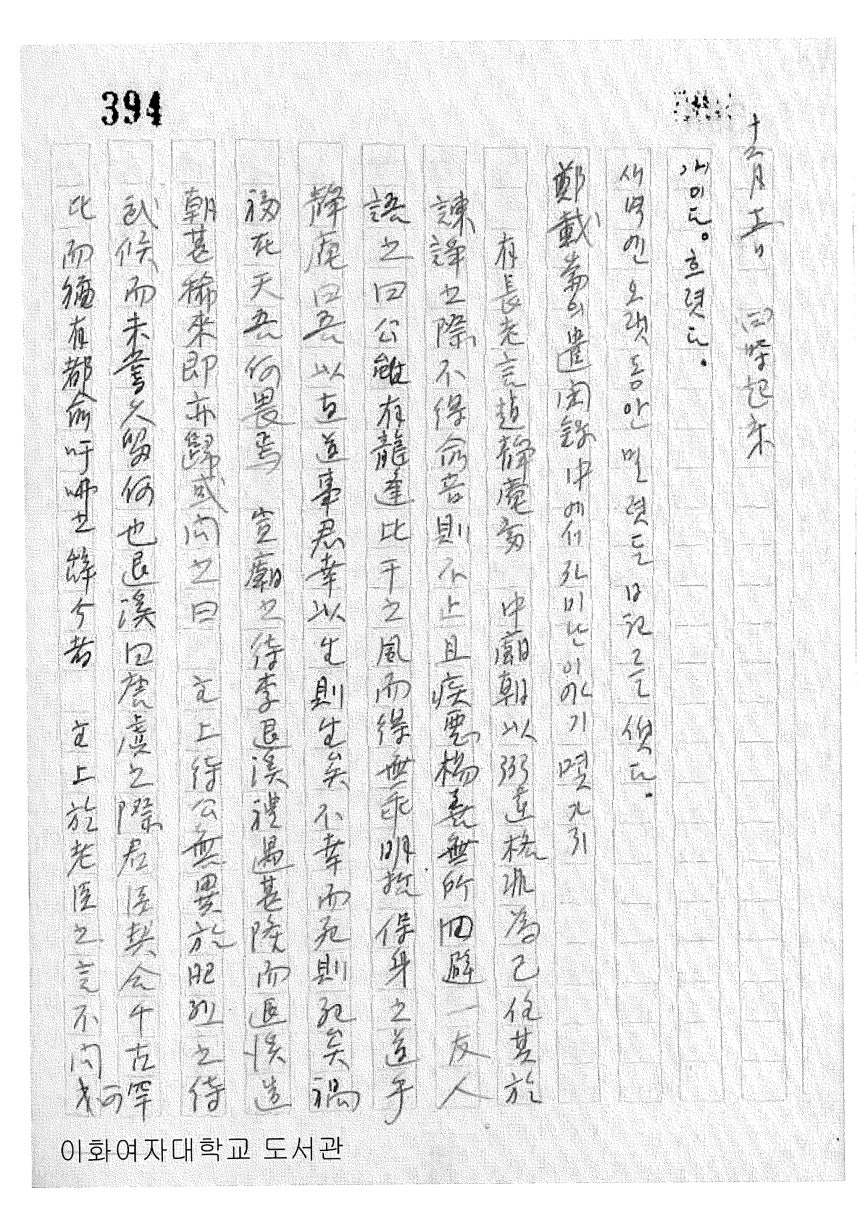 394
十二月五日 四時起床
개이다. 흐렷다.
새벽엔 오랫동안 밀렷든 日記를 썻다.
鄭載崙의 遣閑錄 中에서 자미난 이야기 몇가지
有長老言趙靜庵当 中廟朝以弼違格非為己任其於
諫諍之際不得俞音則不止且疾惡揚善無所回避一友人
語之曰公雖有龍逢比干之風而得無乖明哲保身之道乎
靜庵曰吾以直道事君幸以生則生矣不幸而死則死矣禍
福在天吾何畏焉 宣廟之待李退溪禮遇甚隆而退溪造
朝甚稀來即亦歸或问之曰 主上待公無異於昭烈之待
武候而未嘗久留何也退溪曰唐虞之際君臣契合千古罕
比而猶有都俞吁咈之辞今者 主上於老臣之言不问可
이화여자대학교 도서관